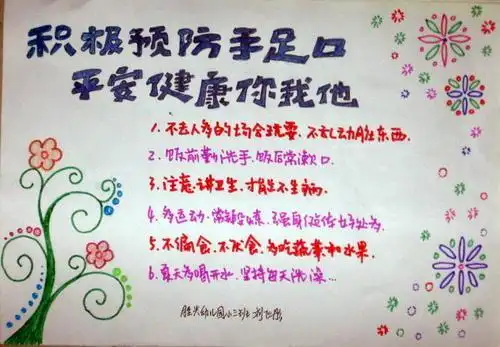 积极预防手足口
平安健康你我他
1. 不去人多的场合玩耍.不乱动脏东西.
2. 饭前勤洗手.饭后常漱口.
3. 注意讲卫生,才能不生病.
4. 多运动.常锻炼.强身健体
5. 不偏食.不厌食.多吃蔬菜和水果.
6. 夏天多喝开水.坚持每天洗澡...
胜兴幼儿园小三班